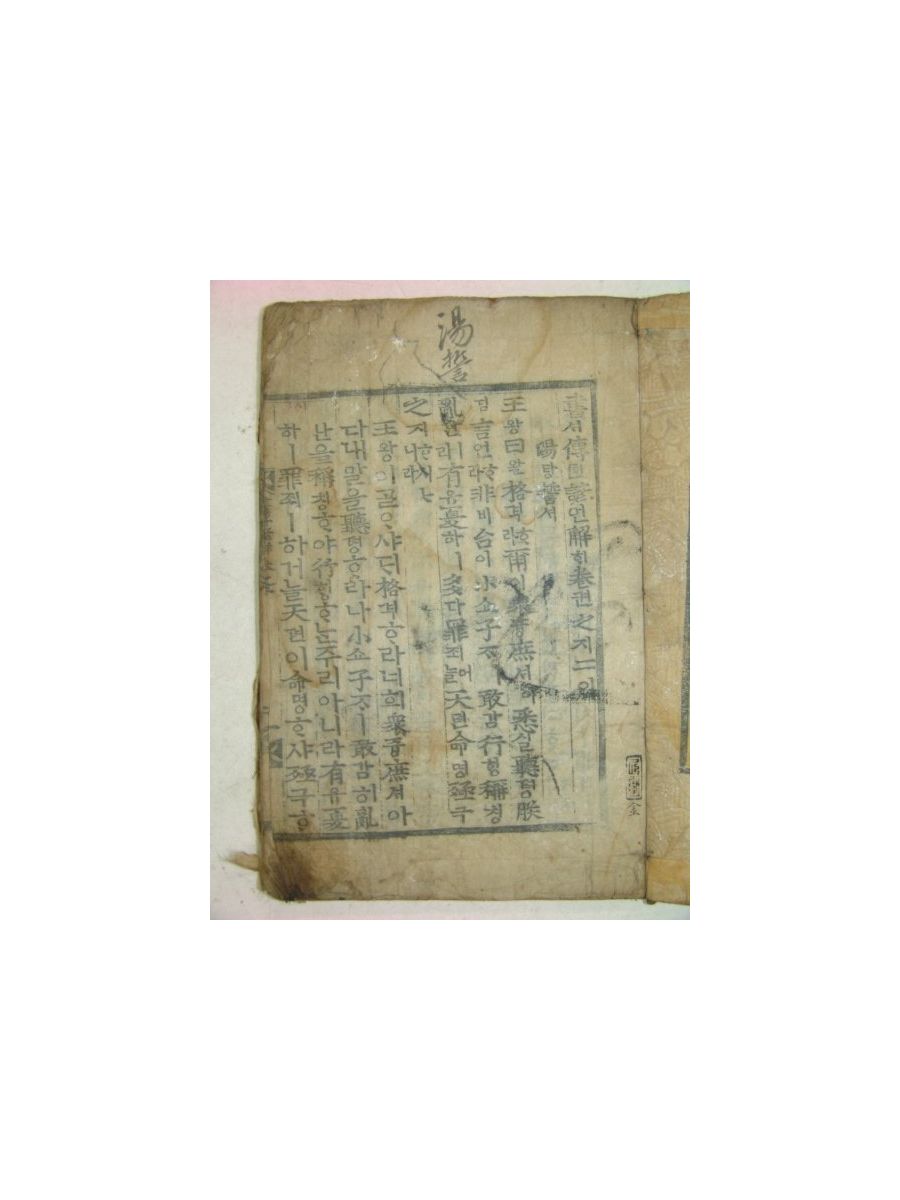 湯誓
書셔傳뎐諺언解ᄒᆡ卷권之지二이
湯탕誓셔
王왕曰왈格격ᄒᆞ라爾이衆즁庶셔 悉실聽텽朕
딤言언ᄒᆞ라非비台이小쇼子ᄌᆞ 敢감行ᄒᆡᆼ稱칭
亂란이라有유夏하ㅣ多다罪죄어늘天텬命명殛극
之지ᄒᆞ시ᄂᆞ니라
王왕이ᄀᆞᆯᄋᆞ샤ᄃᆡ格격ᄒᆞ라너희衆즁庶셔아
다내말을聽텽ᄒᆞ라나小쇼子ᄌᆞㅣ敢감히亂
난을稱칭ᄒᆞ야行ᄒᆡᆼᄒᆞᄂᆞᆫ주리아니라有유夏
하ㅣ罪죄ㅣ하거늘天텬이命명ᄒᆞ샤殛극ᄒᆞ
全